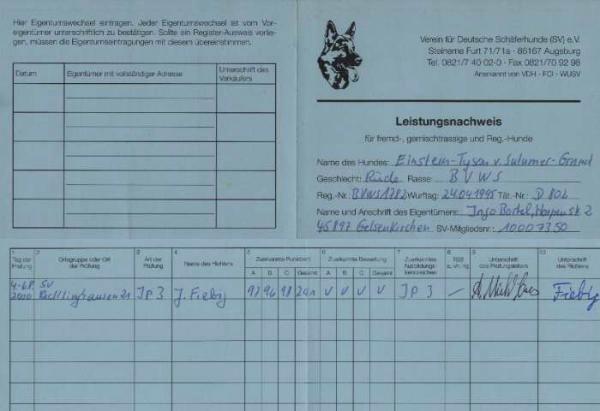 Hier Eigentumswechsel eintragen. Jeder Eigentumswechsel ist vom Vor-
eigentümer unterschriftlich zu bestätigen. Sollte ein Register-Ausweis vorlie-
gen, müssen die Eigentumseintragungen mit diesem übereinstimmen.
Datum Eigentümer mit vollständiger Adresse Unterschrift des Verkäufers
Verein für Deutsche Schäferhunde (SV) e.V.
Steinerne Furt 71/71a · 86167 Augsburg
Tel. 0821/7 40 02-0 · Fax 0821/70 92 98
Anerkannt von VDH · FCI · WUSV
Leistungsnachweis
für fremd-, gemischtrassige und Reg.-Hunde
Name des Hundes: Einstein-Tyson v. Sutumer-Grund
Geschlecht: Rüde Rasse: BVWS
Reg.-Nr. BVWS1782 Wurftag: 24.04.1995 Tät.-Nr.: D 802
Name und Anschrift des Eigentümers: Ingo Bartel, 2
45897 Gelsenkirchen SV-Mitgliedsnr.: 10007350
1 2 3 4 5 6 7 8 9 10
Tag der Prüfung Ortsgruppe oder Ort der Prüfung Art der Prüfung Name des Richters Zuerkannte Punktzahl Zuerkannte Bewertung Zuerkanntes Ausbildungskennzeichen Unterschrift des Prüfungsleiters Unterschrift des Richters
A B C Gesamt A B C Gesamt
SV
2000 Recklinghausen IP 3 J. Fiebig 97 96 98 291 V V V V IP 3 – Fiebig